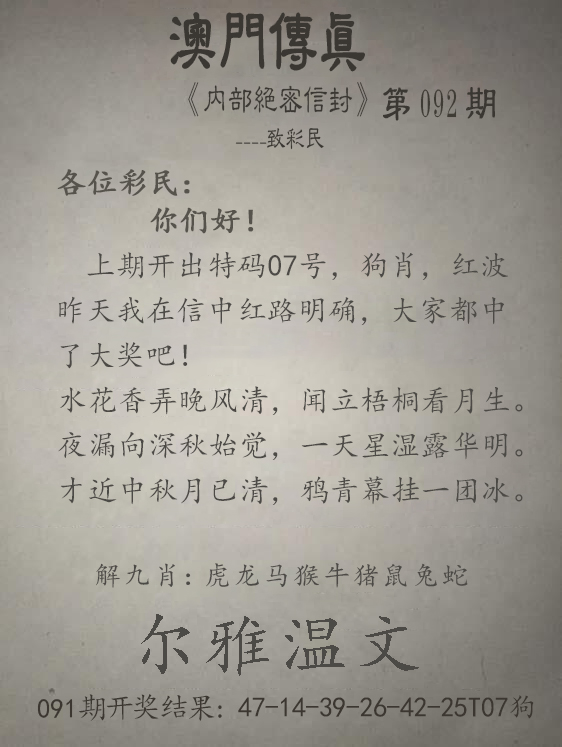 澳門傳眞
《内部絕密信封》第092期
----致彩民
各位彩民：
你们好！
上期开出特码07号，狗肖，红波
昨天我在信中红路明确，大家都中
了大奖吧！
水花香弄晚风清，闻立梧桐看月生。
夜漏向深秋始觉，一天星湿露华明。
才近中秋月已清，鸦青幕挂一团冰。
解九肖：虎龙马猴牛猪鼠兔蛇
尔雅温文
091期开奖结果：47-14-39-26-42-25T07狗